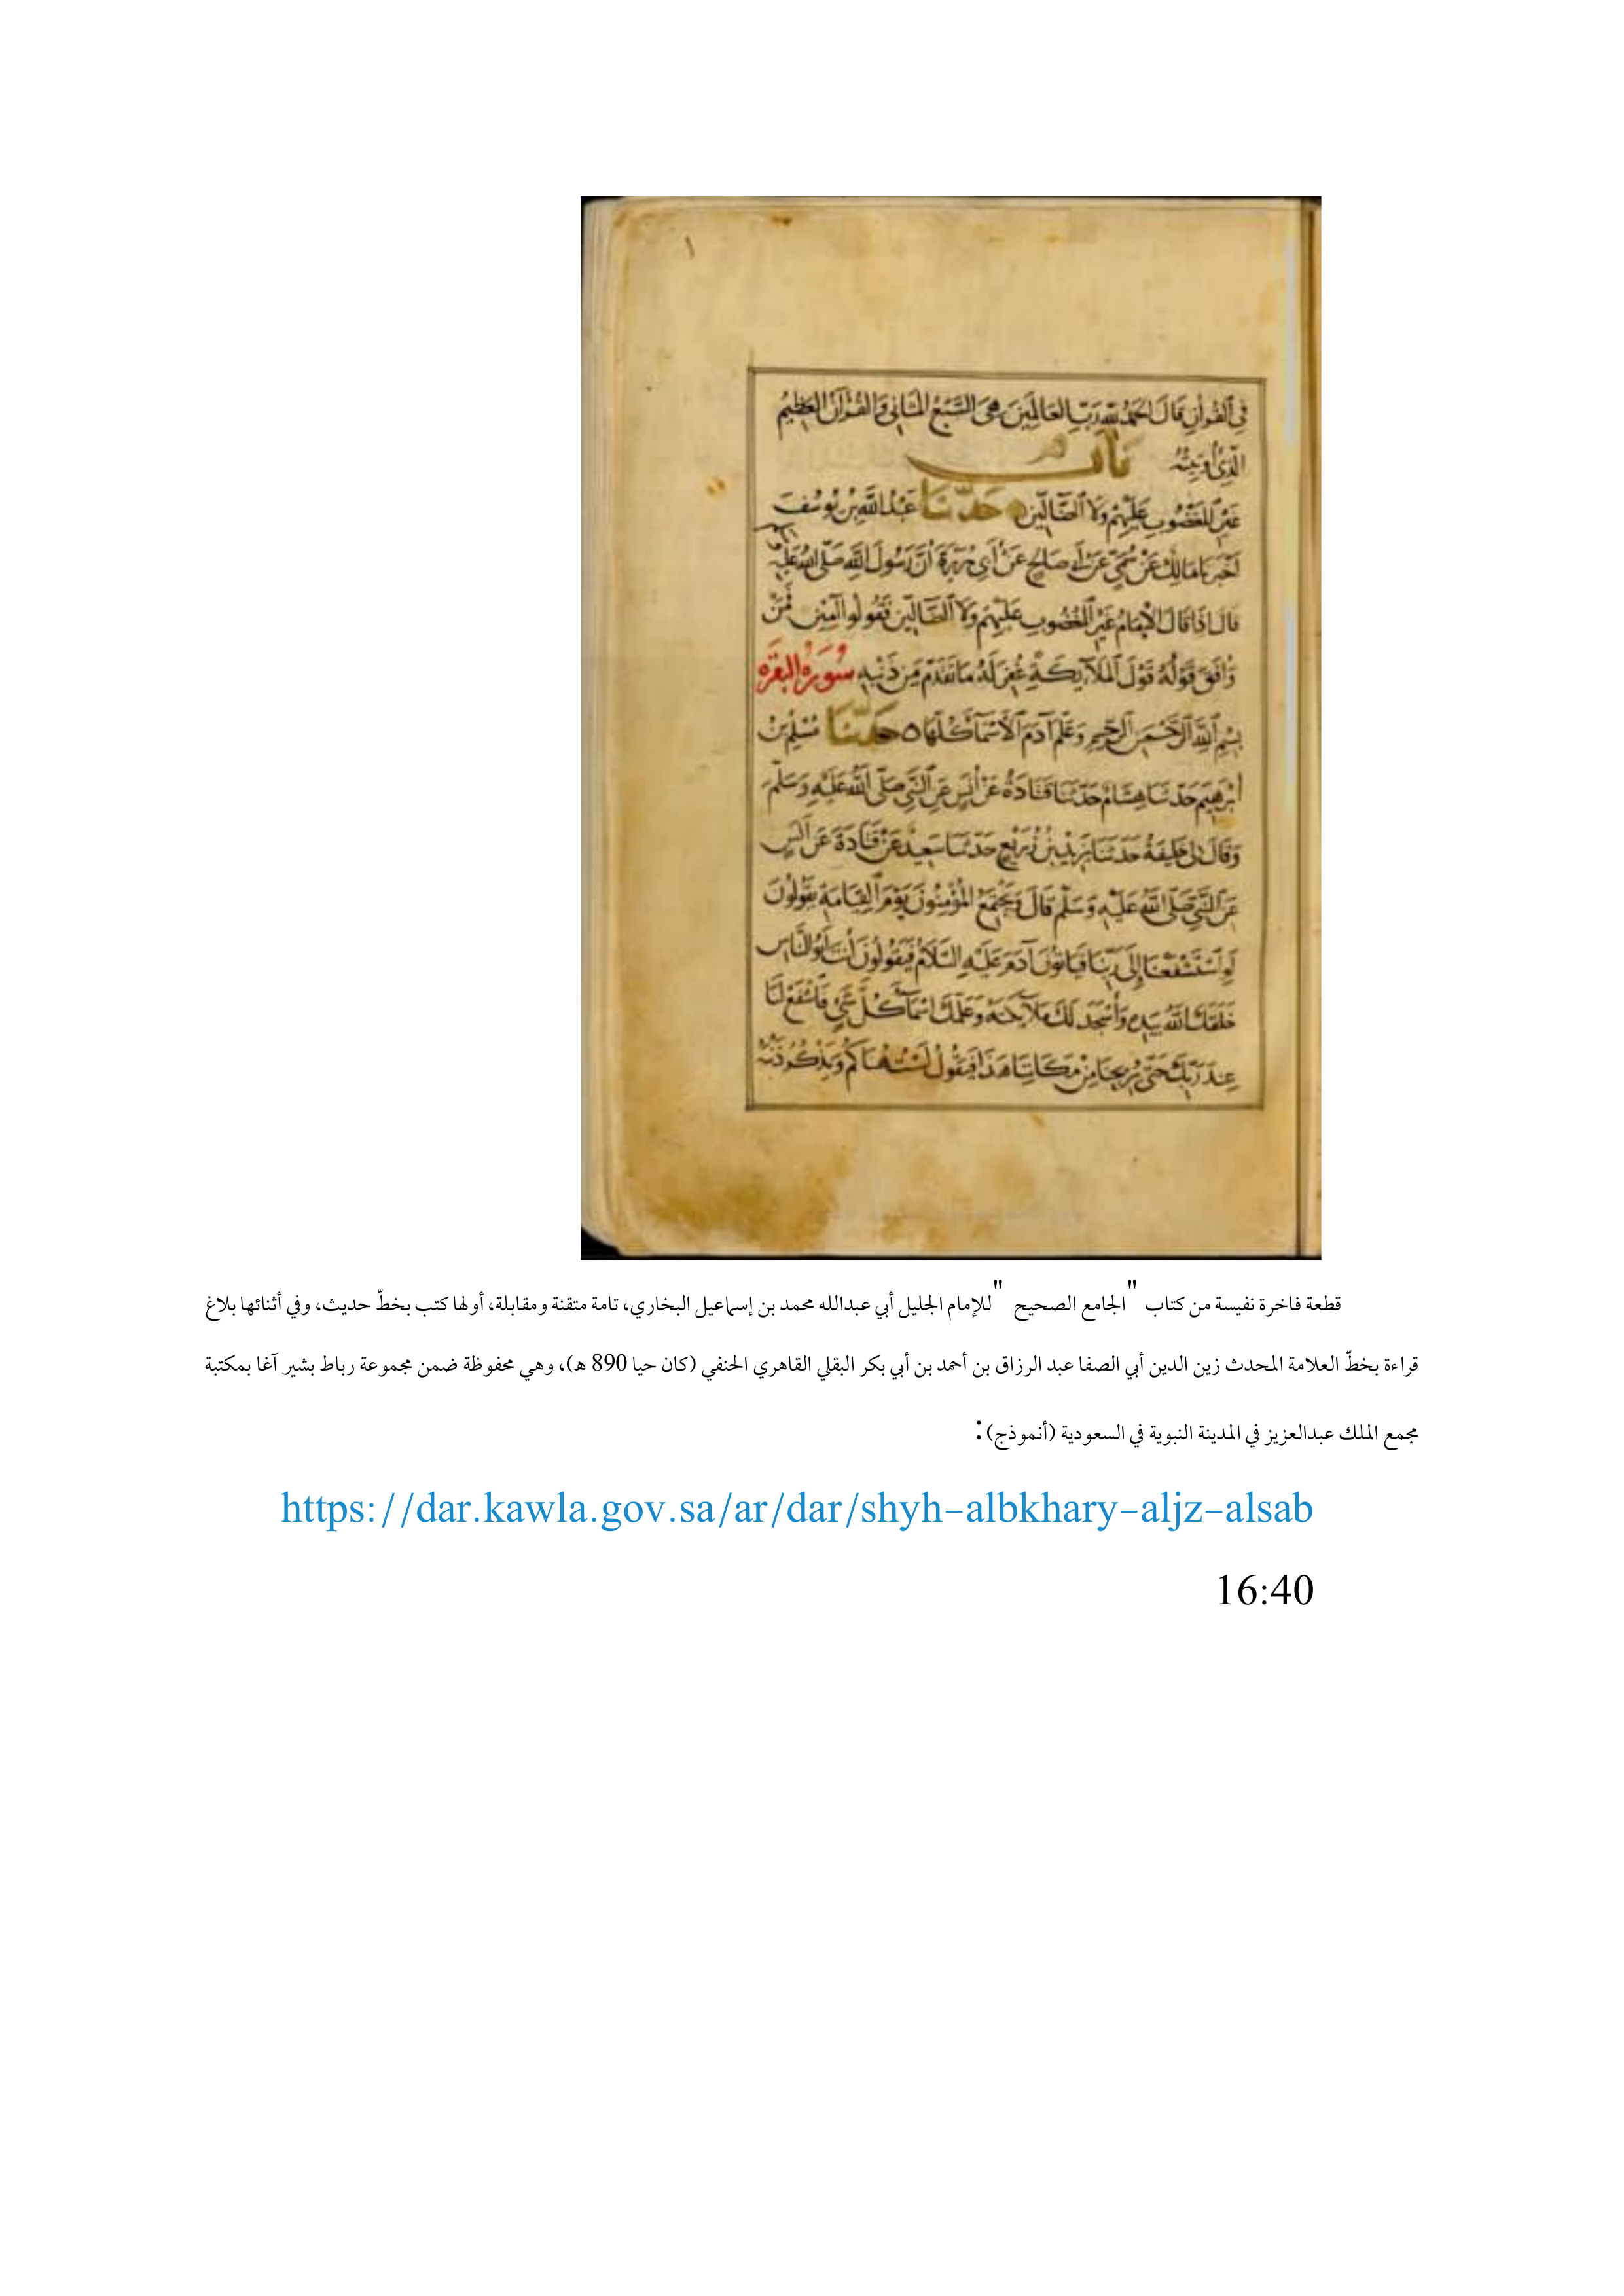 ١
في القرآن قال الحمد لله رب العالمين هي السبع المثاني والقرآن العظيم
الذي أوتيته باب
غير المغضوب عليهم ولا الضالين حدثنا عبد الله بن يوسف
أخبرنا مالك عن سمي عن أبي صالح عن أبي هريرة أن رسول الله صلى الله عليه
قال إذا قال الإمام غير المغضوب عليهم ولا الضالين فقولوا آمين فمن
وافق قوله قول الملائكة غفر له ما تقدم من ذنبه سورة البقرة
بسم الله الرحمن الرحيم وعلم آدم الأسماء كلها حدثنا مسلم بن
إبرهيم حدثنا هشام حدثنا قتادة عن أنس عن النبي صلى الله عليه وسلم
وقال لي خليفة حدثنا يزيد بن زريع حدثنا سعيد عن قتادة عن أنس
عن النبي صلى الله عليه وسلم قال ويجتمع المؤمنون يوم القيامة يقولون
لو استشفعنا إلى ربنا فيأتون آدم عليه السلام فيقولون أنت أبو الناس
خلقك الله بيده وأسجد لك ملائكته وعلمك أسماء كل شيء فاشفع لنا
عند ربك حتى يريحنا من مكاننا هذا فيقول لست هناكم ويذكر ذنبه
قطعة فاخرة نفيسة من كتاب "الجامع الصحيح "للإمام الجليل أبي عبدالله محمد بن إسماعيل البخاري، تامة متقنة ومقابلة، أولها كتب بخطّ حديث، وفي أثنائها بلاغ
قراءة بخطّ العلامة المحدث زين الدين أبي الصفا عبد الرزاق بن أحمد بن أبي بكر البقلي القاهري الحنفي (كان حيا 890 هـ)، وهي محفوظة ضمن مجموعة رباط بشير آغا بمكتبة
مجمع الملك عبدالعزيز في المدينة النبوية في السعودية (أنموذج):
https://dar.kawla.gov.sa/ar/dar/shyh-albkhary-aljz-alsab
16:40